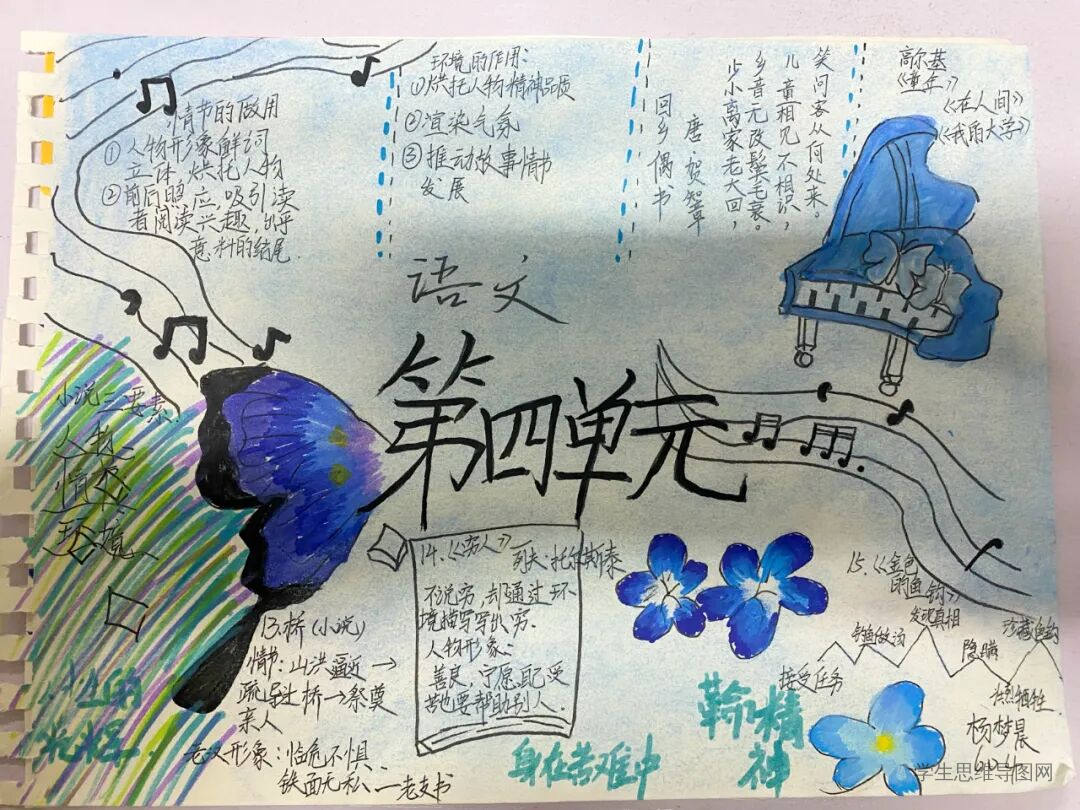 情节的做用
①人物形象鲜词
立体,烘托人物
②前后照应,吸引读
者阅读兴趣,出乎
意料的结尾.
环境的作用:
①烘托人物精神品质
②渲染气氛
③推动故事情书
发展
回乡偶书
唐 贺知章
少小离家老大回,
乡音无改鬓毛衰。
儿童相见不相识,
笑问客从何处来。
高尔基
《童年》
《在人间》
《我的大学》
语文
第四单元
小说三要素:
人物
情节
环境
13.桥(小说)
情节:山洪逼近→
疏导上桥→祭奠
亲人
老汉形象:临危不惧、
铁面无私—老支书
14.《穷人》—列夫·托尔斯泰
不说穷,却通过环
境描写写出穷.
人物形象:
善良,宁愿自己受
苦也要帮助别人.
15.《金色
的鱼钩》
发现真相
钓鱼做汤
隐瞒
珍藏鱼钩
接受任务
壮烈牺牲
身在苦难中
精神
杨梦晨
学生思维导图网